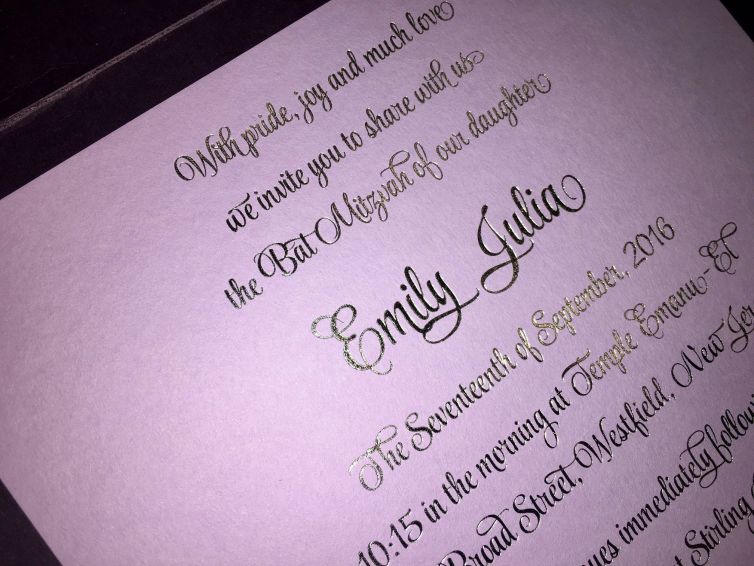 With pride, joy and much love
we invite you to share with us
the Bat Mitzvah of our daughter
Emily Julia
The Seventeenth of September, 2016
10:15 in the morning at Temple Emanu-El
Broad Street, Westfield, New
immediately
Stirling